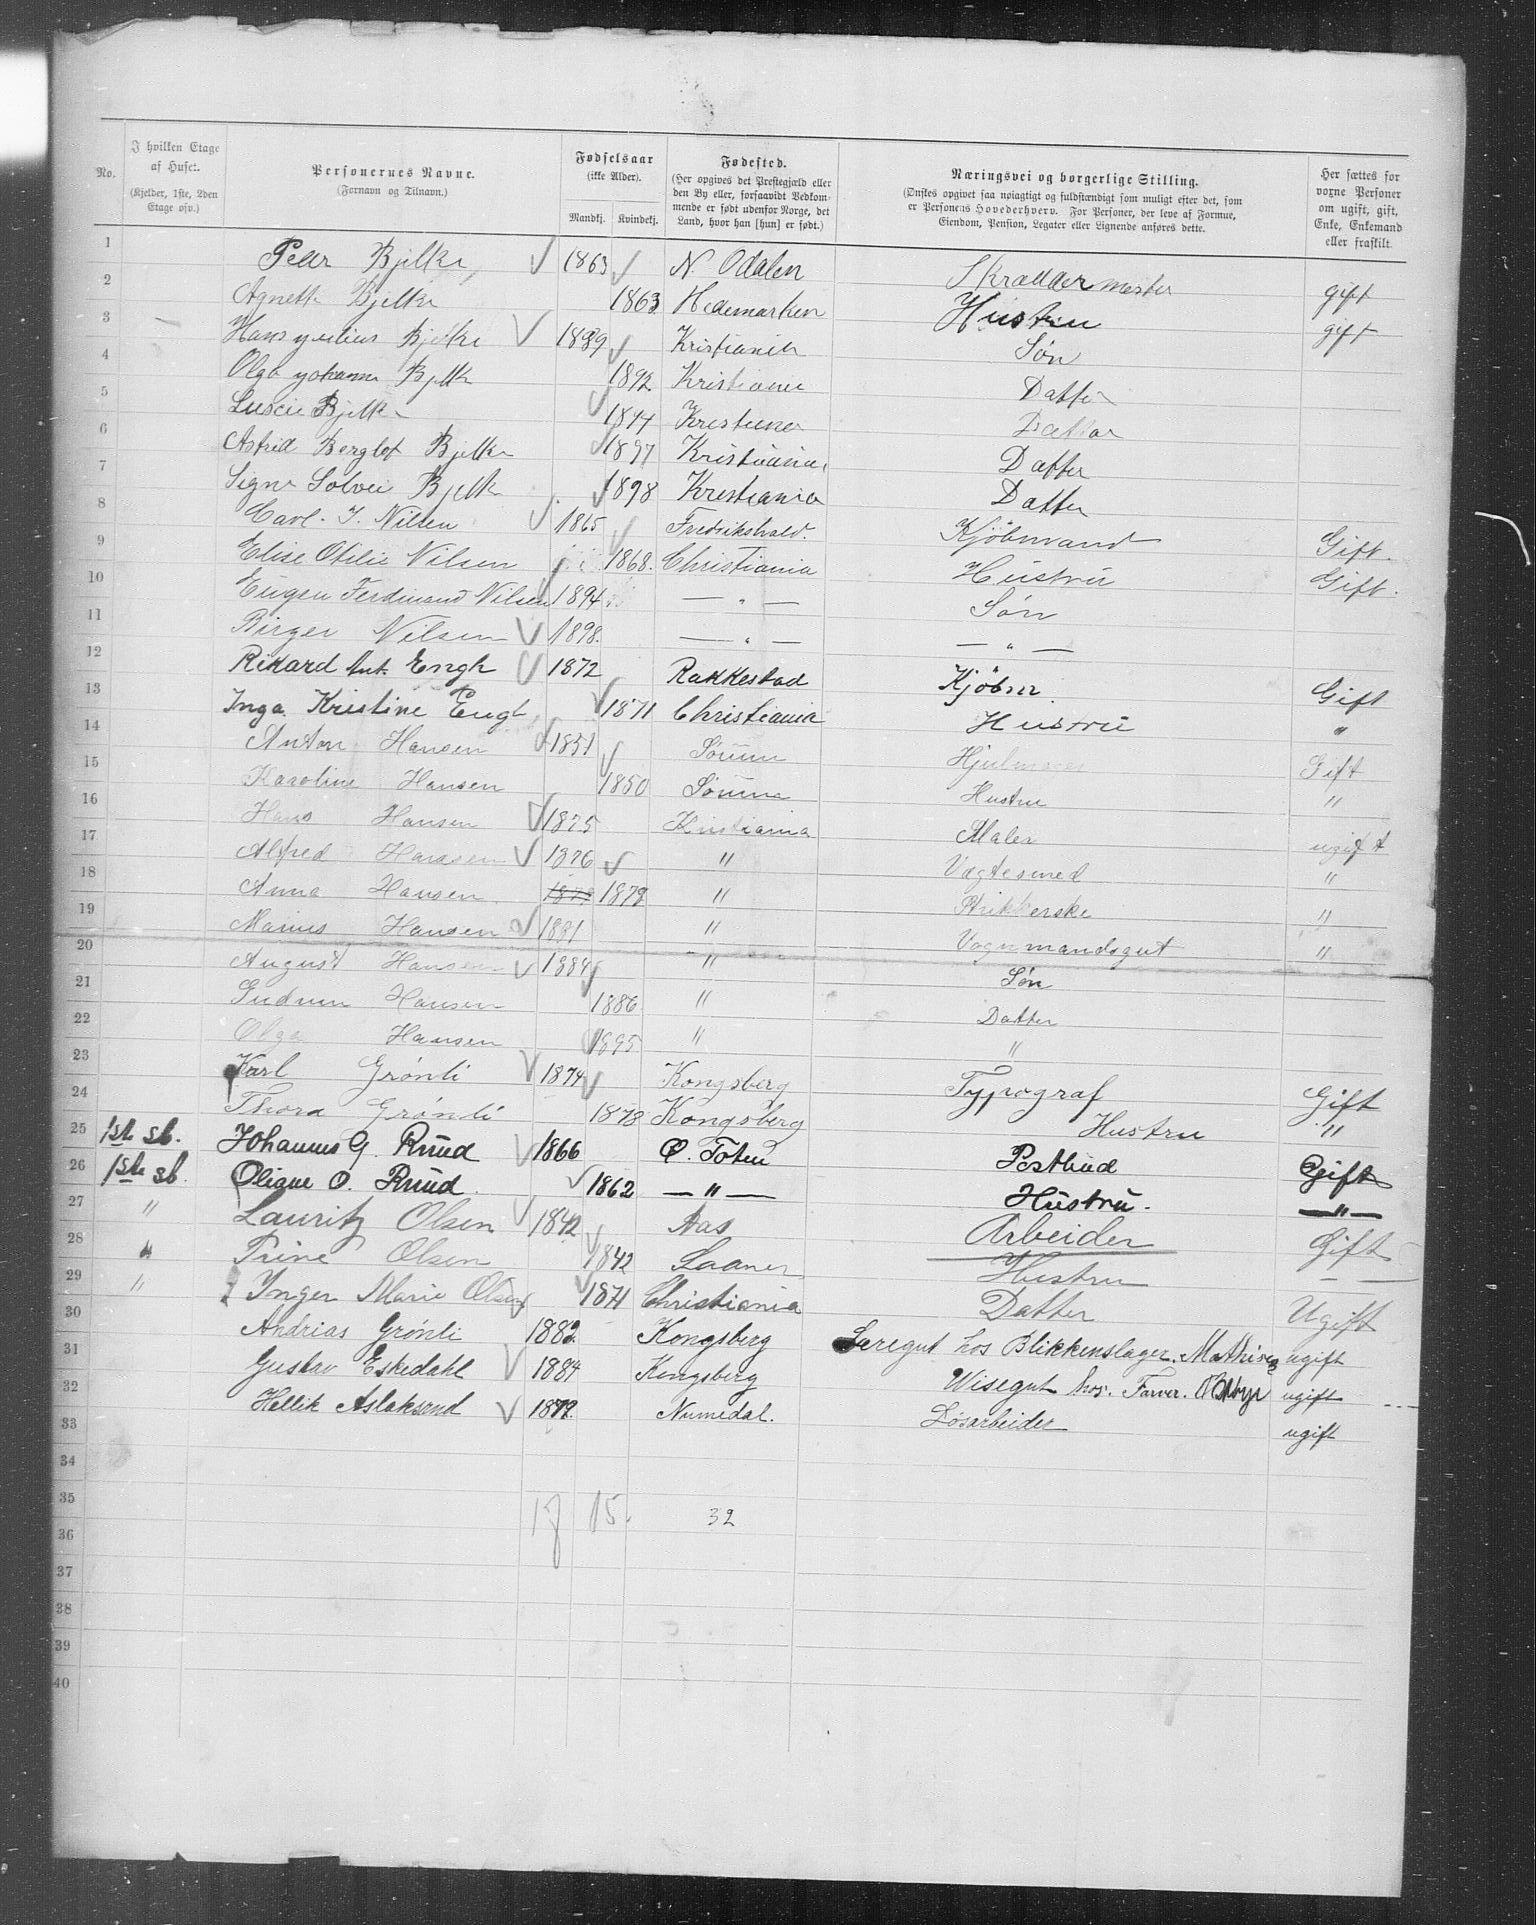 No. | I hvilken Etage af Huset. (Kjelder, 1ste, 2den Etage osv.) | Personernes Navne. (Fornavn og Tilnavn.) | Fødselsaar (ikke Alder). Mandkj. Kvindekj. | Fødested. (Her opgives det Prestegjæld eller den By eller, forsaavidt Vedkommende er født udenfor Norge, det Land, hvor han [hun] er født.) | Næringsvei og borgerlige Stilling. (Ønskes opgivet saa nøiagtigt og fuldstændigt som muligt efter det, som er Personens Hovederhverv. For Personer, der leve af Formue, Eiendom, Pension, Legater eller Lignende anføres dette. | Her sættes for voxne Personer om ugift, gift, Enke, Enkemand eller fraskilt.
1 Peder Bjelke 1863 N. Odalen Skræddermester gift
2 Agnethe Bjelke 1863 Hedemarken Hustru gift
3 Hans yulius Bjelke 1889 Kristiania Søn
4 Olga yohanne Bjelke 1892 Kristiania Datter
5 Luscie Bjelke 1894 Kristiania Datter
6 Astrid Berglot Bjelke 1897 Kristiania Datter
7 Signe Solvei Bjelke 1898 Krestiania Datter
8 Carl. J. Nilsen 1865 Fredrikshald. Kjøbmand Gift.
9 Elise Otilie Nilsen 1868. Christiania Hustru Gift.
10 Eugen Ferdinand Nilsen 1894 — " — Søn
11 Birger Nilsen 1898. — " — — " —
12 Rikard Ant. Engh 1872 Rakkestad Kjøbm Gift
13 Inga Kristine Engh 1871 Christiania Husrru "
14 Anton Hansen 1851 Sørum Gift
15 Karoline Hansen 1850 Sørum Hustru "
16 Hans Hansen 1875 Kristiania Maler ugift
17 Alfred Hansen 1876 " Vægtesmed "
18 Anna Hansen 1879 " Strikkerske "
19 Marius Hansen 1881 " Vognmandsgut "
20 August Hansen 1884 " Søn
21 Gudrun Hansen 1886 " Datter
22 Olga Hansen 1895 " "
23 Karl Grønli 1874 Kongsberg Typograf Gift
24 Thora Grønli 1878 Kongsberg Hustru "
25 1ste st. Johannes G. Ruud 1866 Ø. Toten Postbud Gift
26 1ste st. Oliane O. Ruud 1862 — " — Hustru. — " —
27 " Lauritz Olsen 1842 Aas Arbeider Gift
28 " Trine Olsen 1842 Hustru —
29 " Inger Marie Olsen 1871 Christiania Datter Ugift
30 Andrias Grønli 1882 Kongsberg Læregut hos Blikkenslager. Mathisen ugift
31 Gustav Eskedahl 1884 Kongsberg Wisegut hos. Farver. ugift
32 Hellik Aslaksend 1879. Numedal. Løsarbeider ugift
33
34
35 17 15. 32
36
37
38
39
40